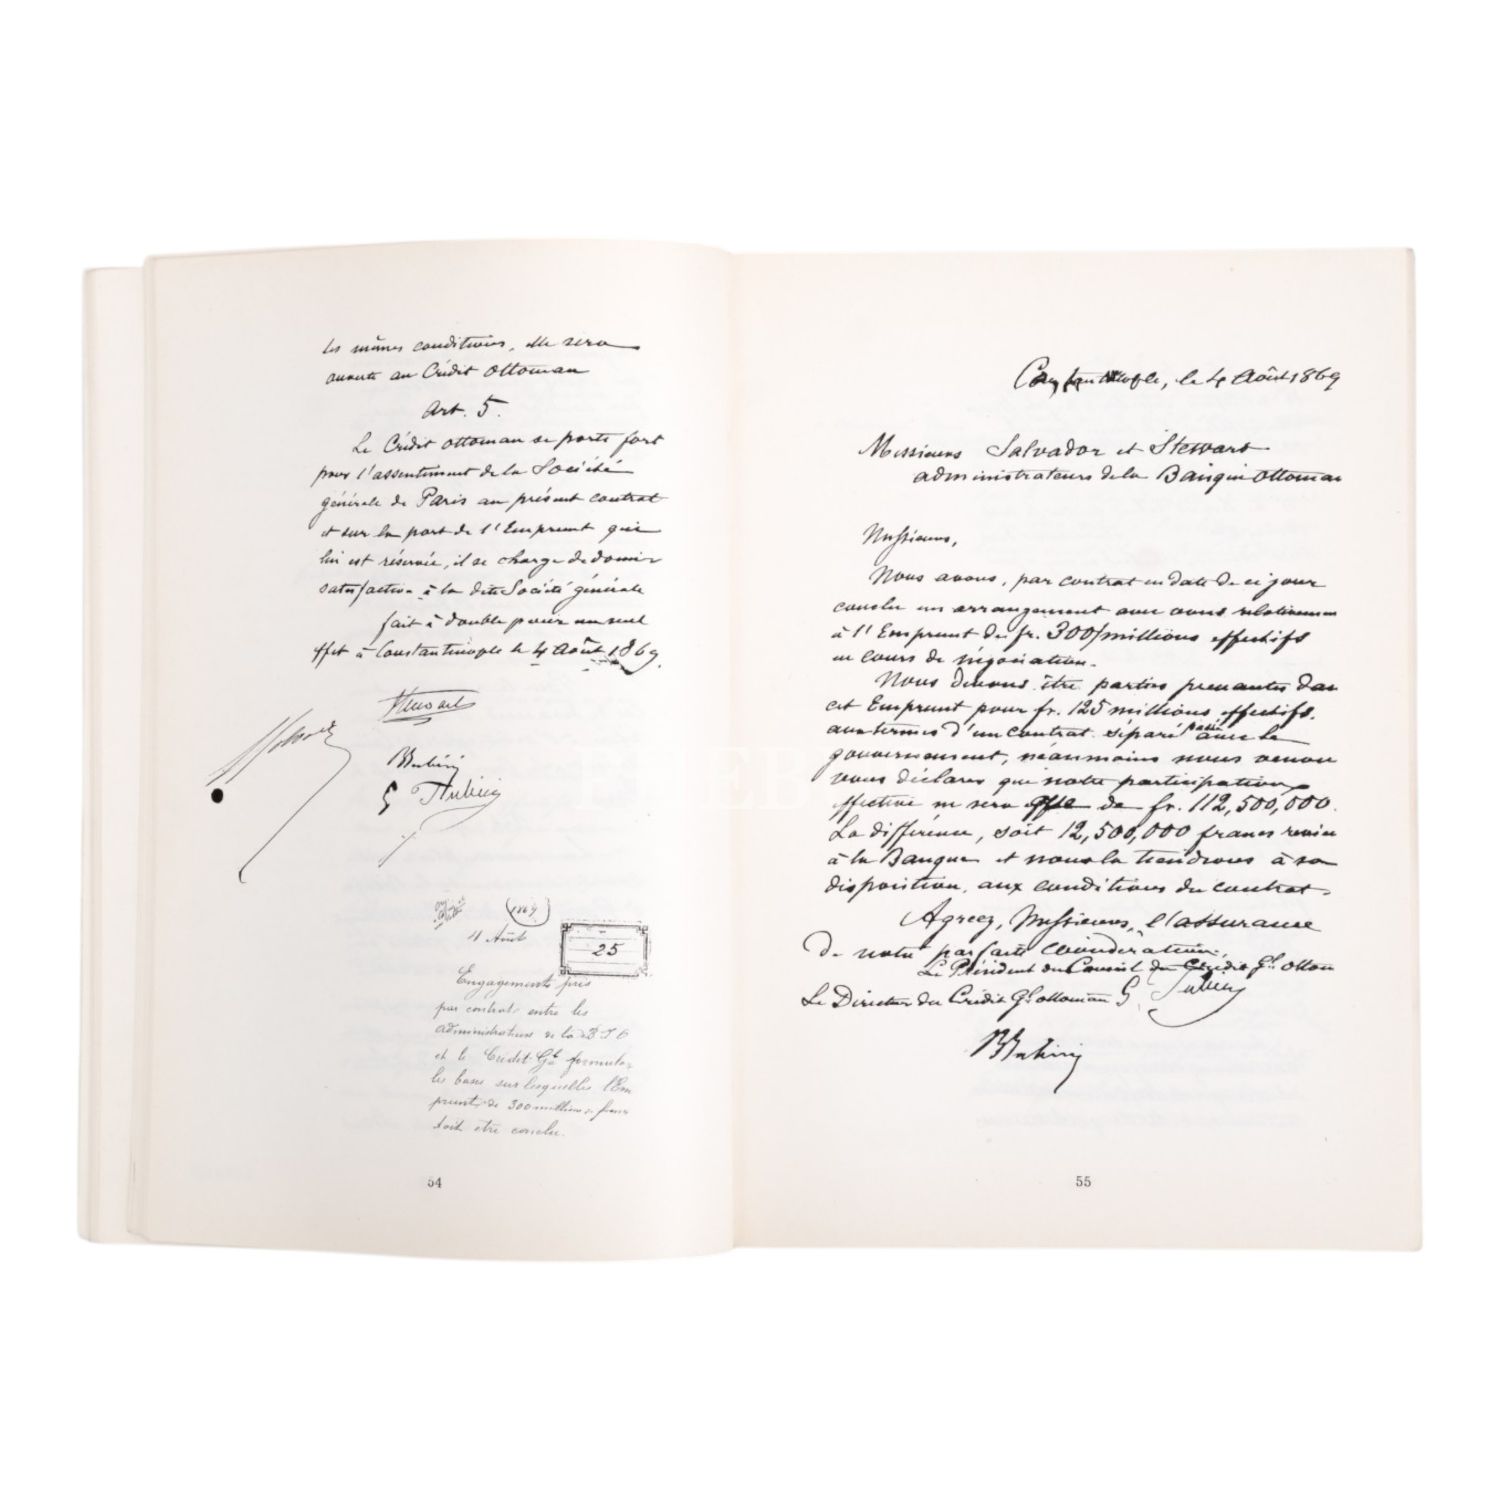 les mêmes conditions, elle sera
ouverte au Crédit Ottoman
Art. 5.
Le Crédit Ottoman se porte fort
pour l'assentiment de la Société
générale de Paris au présent contrat
et sur la part de l'Emprunt qui
lui est réservée, il se charge de donner
satisfaction à la dite Société générale
fait à double pour un seul
effet à Constantinople le 4 Août 1869.
Stewart
Salvador
BTubini
G Tubini
1869
4 Août
25
Engagements pris
par contrat entre les
administrateurs de la B I O
et le Crédit Gal formulant
les bases sur lesquelles l'Em
prunt de 300 millions francs
doit être conclu.
54
Constantinople, le 4 Août 1869
Messieurs Salvador et Stewart
administrateurs de la Banque Ottoman
Messieurs,
Nous avons, par contrat en date de ce jour
conclu un arrangement avec vous relativemen
à l'Emprunt de fr. 300/millions effectifs
en cours de négociation.
Nous devons être parties prenantes dans
cet Emprunt pour fr. 125 millions effectifs,
aux termes d'un contrat séparé passé avec le
gouvernement, néanmoins nous venons
vous déclarer que notre participation
effective ne sera que de fr. 112,500,000.
La différence, soit 12,500,000 francs revien
à la Banque et nous la tiendrons à sa
disposition, aux conditions du contrat.
Agréez, Messieurs, l'assurance
de notre parfaite considération,
Le Président du Conseil du Crédit Gl. Ottom
Le Directeur du Crédit Gl. Ottoman G Tubini
BTubini
55